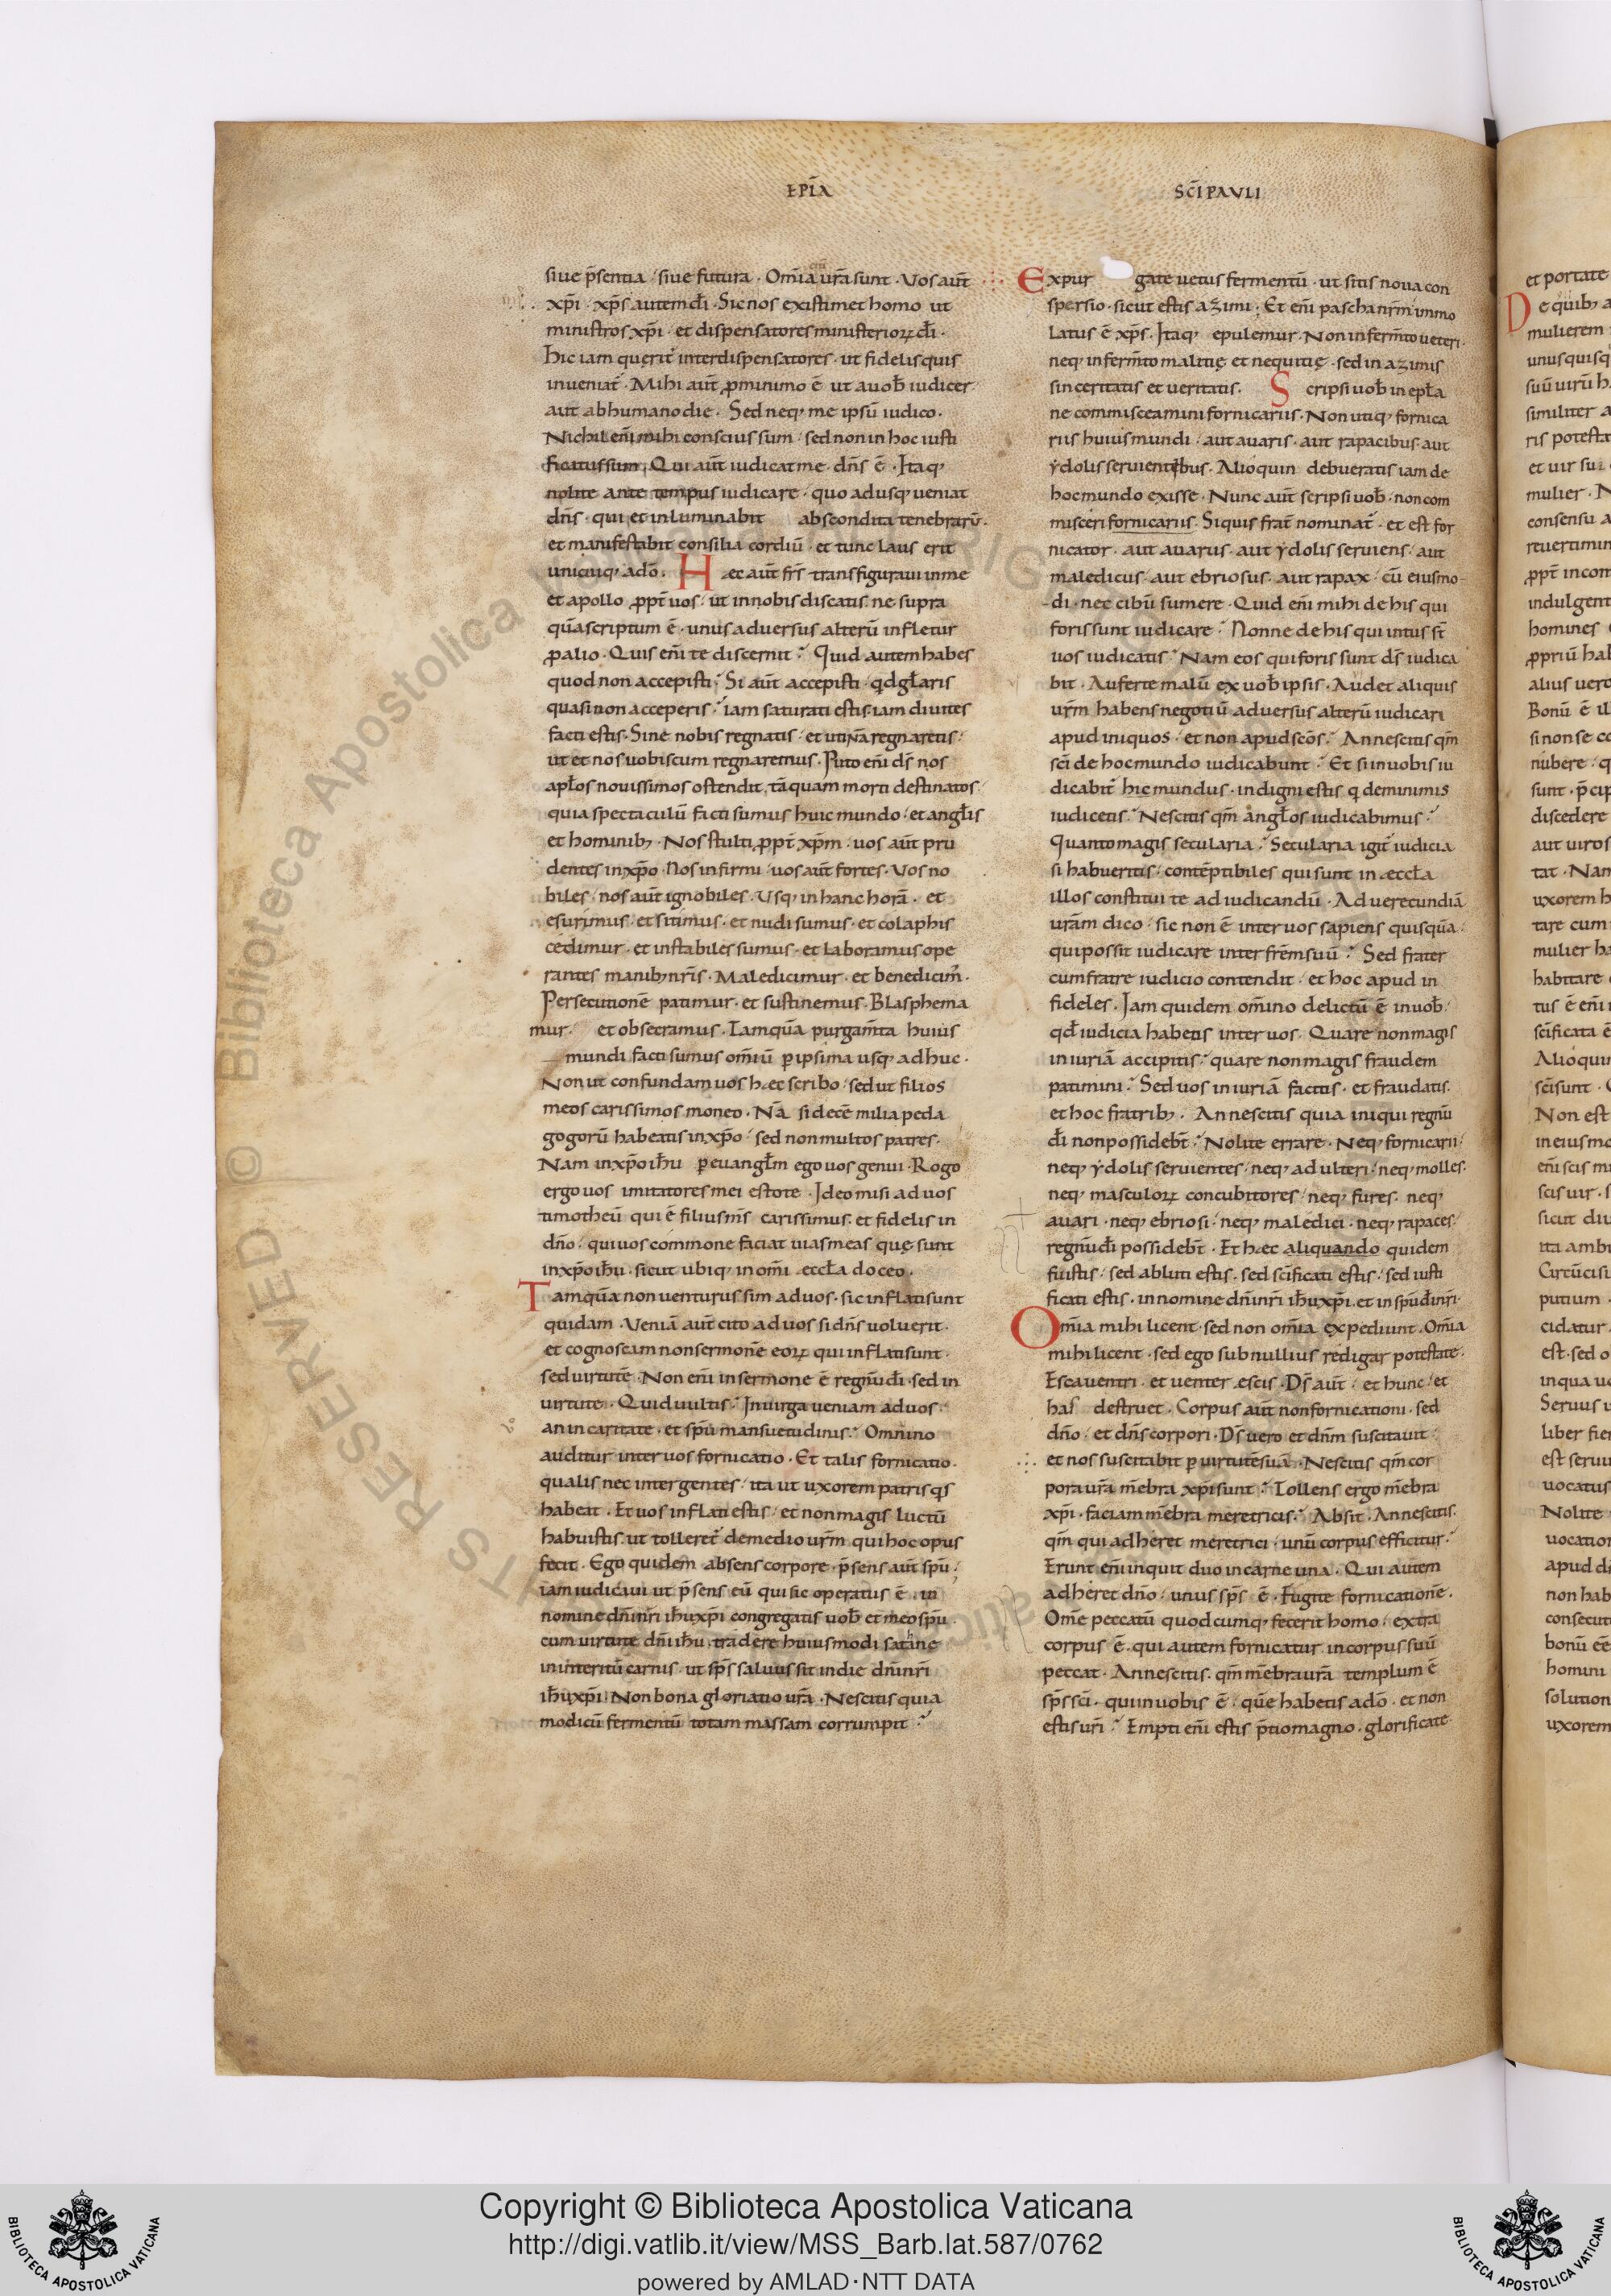 EPL̄A
SC̄I PAULI
siue p̄sentia · siue futura · Om̄ia ur̄a sunt · Vos aut̄
xp̄i · xp̄s autem dī · Sic nos existimet homo ut
ministros xp̄i · et dispensatores ministerioꝝ dī ·
hic iam querit̄ inter dispensatores · ut fidelis quis
inueniat̄ · Mihi aut̄ ꝓ minimo ē ut a uob̄ iudicer
aut ab humano die · Sed neq; me ipsū iudico ·
Nichil enī mihi conscius sum · sed non in hoc iusti
ficatus sum · Qui aut̄ iudicat me · dn̄s ē · Itaq;
nolite ante tempus iudicare · quo adusq; ueniat
dn̄s · qui et inluminabit abscondita tenebrarū ·
et manifestabit consilia cordiū · et tunc laus erit
unicuiq; a dō · Hec aut̄ fr̄s transfiguraui in me
et apollo ꝓpt̄ uos · ut in nobis discatis · ne supra
quā scriptum ē · unus aduersus alterū infletur
ꝓ alio · Quis enī te discernit ? Quid autem habes
quod non accepisti ? Si aut̄ accepisti · qd gl̄aris
quasi non acceperis ? iam saturati estis · iam diuites
facti estis · Sine nobis regnatis · et utinā regnaretis ·
ut et nos uobiscum regnaremus · Puto enī ds̄ nos
apl̄os nouissimos ostendit · tāquam morti destinatos
quia spectaculū facti sumus huic mundo · et angl̄is
et hominib; · Nos stulti ꝓpt̄ xp̄m · uos aut̄ pru
dentes in xp̄o · Nos infirmi · uos aut̄ fortes · Vos no
biles · nos aut̄ ignobiles · Usq; in hanc horā · et
esurimus · et sitimus · et nudi sumus · et colaphis
cedimur · et instabiles sumus · et laboramus ope
rantes manib; nr̄is · Maledicimur · et benedicim̄ ·
Persecutionē patimur · et sustinemus · Blasphema
mur · et obsecramus · Tamquā purgam̄ta huius
mundi facti sumus om̄iū ꝑipsima usq; adhuc ·
Non ut confundam uos hæc scribo · sed ut filios
meos carissimos moneo · Nā si decē milia peda
gogorū habeatis in xp̄o · sed non multos patres ·
Nam in xp̄o ih̄u ꝑ euangl̄m ego uos genui · Rogo
ergo uos imitatores mei estote · Ideo misi ad uos
timotheū qui ē filius m̄s carissimus · et fidelis in
dn̄o · qui uos commone faciat uias meas quę sunt
in xp̄o ih̄u · sicut ubiq; in om̄i æccl̄a doceo ·
Tamquā non uenturus sim ad uos · sic inflati sunt
quidam · Veniā aut̄ cito ad uos si dn̄s uoluerit ·
et cognoscam non sermonē eoꝝ qui inflati sunt ·
sed uirtutē · Non enī in sermone ē regnū dī · sed in
uirtute · Quid uultis ? In uirga ueniam ad uos ·
an in caritate · et spū mansuetudinis ? Omnino
auditur inter uos fornicatio · Et talis fornicatio ·
qualis nec inter gentes · ita ut uxorem patris qs
habeat · Et uos inflati estis · et non magis luctū
habuistis · ut tolleret̄ de medio ur̄m qui hoc opus
fecit · Ego quidem absens corpore · p̄sens aut̄ spū ·
iam iudicaui ut p̄sens eū qui sic operatus ē · in
nomine dn̄i nr̄i ih̄u xp̄i congregatis uob̄ et meo spū ·
cum uirtute dn̄i ih̄u · tradere huiusmodi satane
in interitū carnis · ut sp̄s saluus sit in die dn̄i nr̄i
ih̄u xp̄i · Non bona gloriatio ur̄a · Nescitis quia
modicū fermentū totam massam corrumpit ?
Expurgate uetus fermentū · ut sitis noua con
spersio · sicut estis azimi · Et enī pascha nr̄m immo
latus ē xp̄s · Itaq; epulemur · Non in ferm̄to ueteri ·
neq; in ferm̄to malitię et nequitię · sed in azimis
sinceritatis et ueritatis · Scripsi uob̄ in epl̄a
ne commisceamini fornicariis · Non utiq; fornica
riis huius mundi · aut auaris · aut rapacibus · aut
ydolis seruientibus · Alioquin debueratis iam de
hoc mundo exisse · Nunc aut̄ scripsi uob̄ · non com
misceri fornicariis · Siquis frat̄ nominat̄ · et est for
nicator · aut auarus · aut ydolis seruiens · aut
maledicus · aut ebriosus · aut rapax · cū eiusmo-
-di · nec cibū sumere · Quid enī mihi de his qui
foris sunt iudicare ? Nonne de his qui intus st̄
uos iudicatis ? Nam eos qui foris sunt ds̄ iudica
bit · Auferte malū ex uob̄ ipsis · Audet aliquis
ur̄m habens negotiū aduersus alterū iudicari
apud iniquos · et non apud sc̄os ? An nescitis qm̄
sc̄i de hoc mundo iudicabunt ? Et si in uobis iu
dicabit̄ hic mundus · indigni estis q de minimis
iudicetis ? Nescitis qm̄ angl̄os iudicabimus ?
Quanto magis secularia ? Secularia igit̄ iudicia
si habueritis · contēptibiles qui sunt in æccl̄a
illos constitui te ad iudicandū · Ad uerecundiā
ur̄am dico · sic non ē inter uos sapiens quisquā ·
qui possit iudicare inter fr̄em suū ? Sed frater
cum fratre iudicio contendit · et hoc apud in
fideles · Iam quidem om̄ino delictū ē in uob̄ ·
qd̄ iudicia habetis inter uos · Quare non magis
iniuriā accipitis ? quare non magis fraudem
patimini ? Sed uos iniuriā facitis · et fraudatis ·
et hoc fratrib; · An nescitis quia iniqui regnū
dī non possidebt̄ ? Nolite errare · Neq; fornicarii ·
neq; ydolis seruientes · neq; adulteri · neq; molles ·
neq; masculoꝝ concubitores · neq; fures · neq;
auari · neq; ebriosi · neq; maledici · neq; rapaces ·
regnū dī possidebt̄ · Et hæc aliquando quidem
fuistis · sed abluti estis · sed sc̄ificati estis · sed iusti
ficati estis · in nomine dn̄i nr̄i ih̄u xp̄i · et in spū dī nr̄i ·
Om̄ia mihi licent · sed non om̄ia expediunt · Om̄ia
mihi licent · sed ego sub nullius redigar potestate ·
Esca uentri · et uenter escis · Ds̄ aut̄ · et hunc · et
has destruet · Corpus aut̄ non fornicationi · sed
dn̄o · et dn̄s corpori · Ds̄ uero et dn̄m suscitauit ·
et nos suscitabit ꝑ uirtutē suā · Nescitis qm̄ cor
pora ur̄a mēbra xp̄i sunt ? Tollens ergo mēbra
xp̄i · faciam mēbra meretricis ? Absit · An nescitis ·
qm̄ qui adheret meretrici · unū corpus efficitur ?
Erunt enī inquit duo in carne una · Qui autem
adheret dn̄o · unus sp̄s ē · Fugite fornicationē ·
Om̄e peccatū quodcumq; fecerit homo · extra
corpus ē · qui autem fornicatur in corpus suū
peccat · An nescitis · qm̄ mēbra ur̄a templum ē
sp̄s sc̄i · qui in uobis ē · quē habetis a dō · et non
estis ur̄i ? Empti enī estis p̄tio magno · glorificate
et portate
De quib; a
mulierem
unusquisq
suū uirū h
similiter a
ris potesta
et uir su
mulier · N
consensu a
reuertimin
ꝓpt̄ incon
indulgent
homines
ꝓpriū hab
alius uero
Bonū ē il
si non se co
nubere · q
sunt · p̄cip
discedere
aut uiros
tat · Nam
uxorem h
tare cum
mulier ha
habitare
tus ē enī i
sc̄ificata ē
Alioquin
sc̄i sunt ·
Non est
in eiusmo
enī scis mu
scis uir · s
sicut diu
ita ambu
Circūcisi
putium ·
cidatur ·
est · sed o
in qua uo
Seruus u
liber fier
est seruu
uocatus
Nolite
uocation
apud dm
non hab
consecut
bonū eē
homini
solution
uxorem
© Biblioteca Apostolica Vaticana
RESERVED
Copyright © Biblioteca Apostolica Vaticana
http://digi.vatlib.it/view/MSS_Barb.lat.587/0762
powered by AMLAD·NTT DATA
BIBLIOTECA APOSTOLICA VATICANA
BIBLIOTECA APOSTOLICA VATICANA